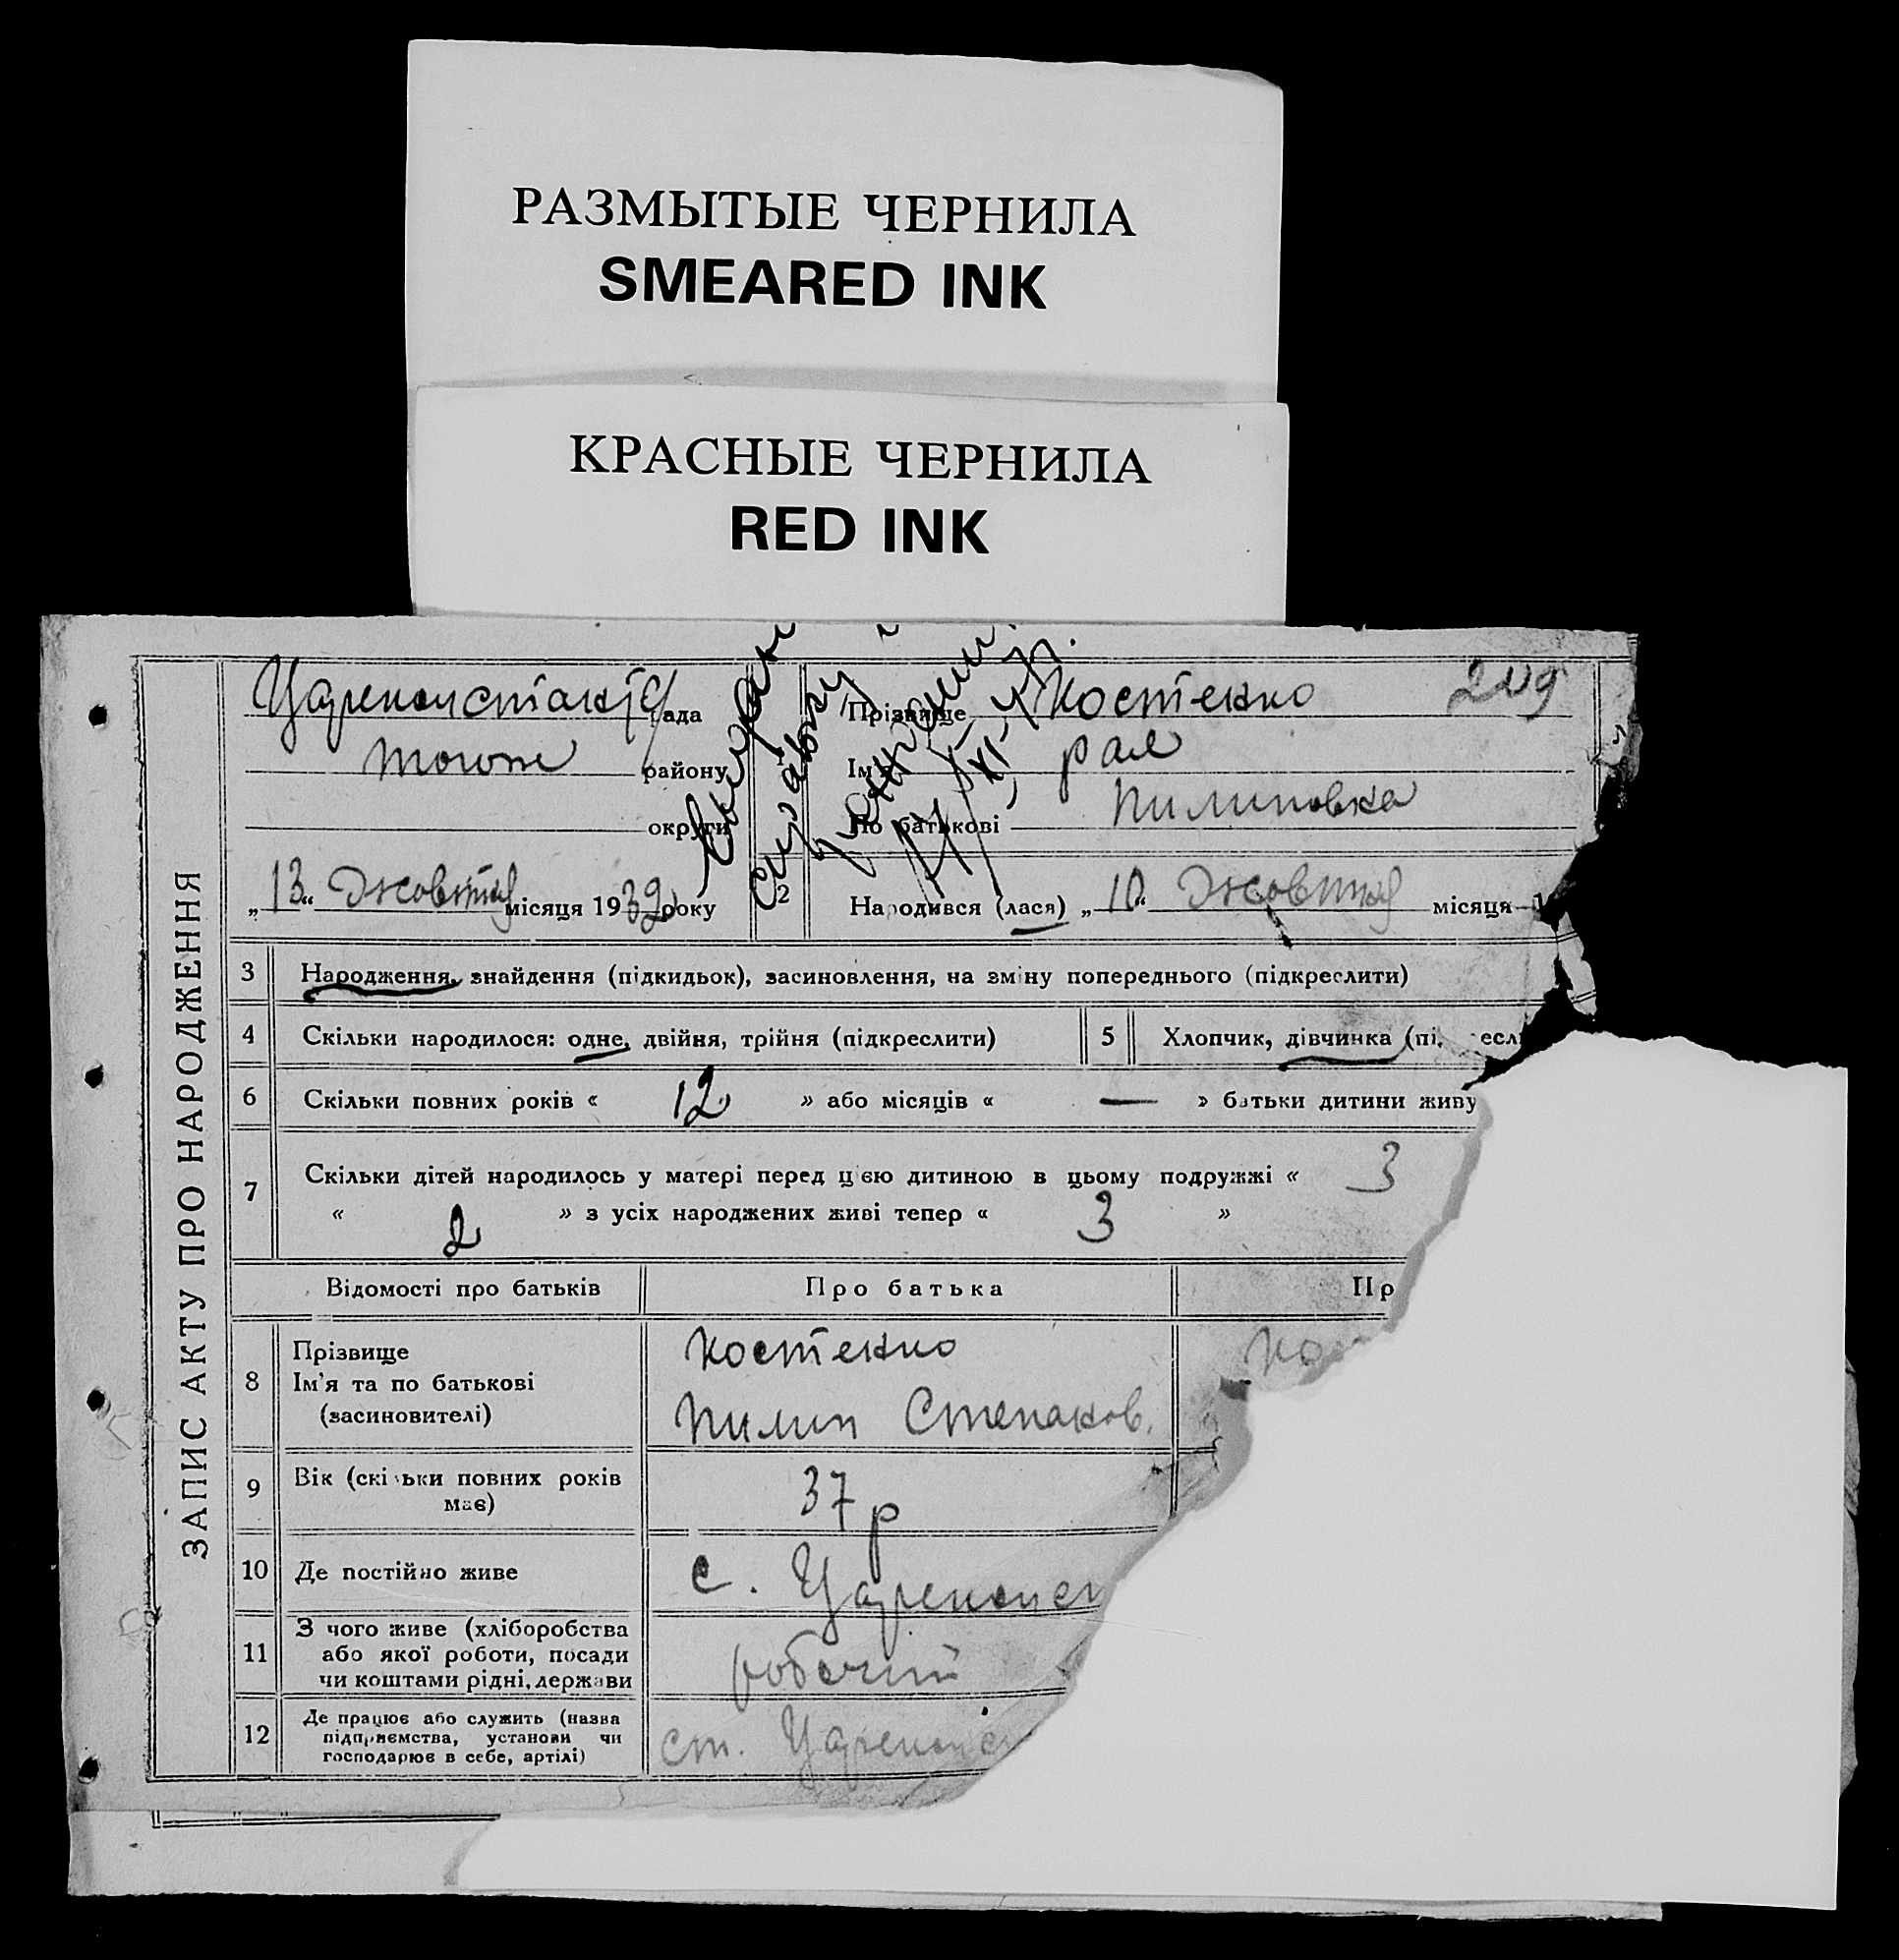 РАЗМЫТЫЕ ЧЕРНИЛА
SMEARED INK
КРАСНЫЕ ЧЕРНИЛА
RED INK
ЗАПИС АКТУ ПРО НАРОДЖЕННЯ
рада
району
округи
„13“ Жовтня місяця 1932 року
209
Прізвище Костенко
Ім'я Рая
По батькові Пилиповна
2 Народився (лася) „10“ Жовтня місяця
3 Народження, знайдення (підкидьок), засиновлення, на зміну попереднього (підкреслити)
4 Скільки народилося: одне, двійня, трійня (підкреслити) 5 Хлопчик, дівчинка
6 Скільки повних років « 12 » або місяців « — » батьки дитини живу
7 Скільки дітей народилось у матері перед цією дитиною в цьому подружжі « 3
« 2 » з усіх народжених живі тепер « 3 »
Відомості про батьків Про батька Пр
8 Прізвище Костенко Ко
Ім'я та по батькові
(засиновителі) Пилип Степанов.
9 Вік (скільки повних років має) 37 р
10 Де постійно живе с.
11 З чого живе (хліборобства
або якої роботи, посади
чи коштами рідні, держави робочий
12 Де працює або служить (назва
підприємства, установи чи
господарює в себе, артілі) ст.